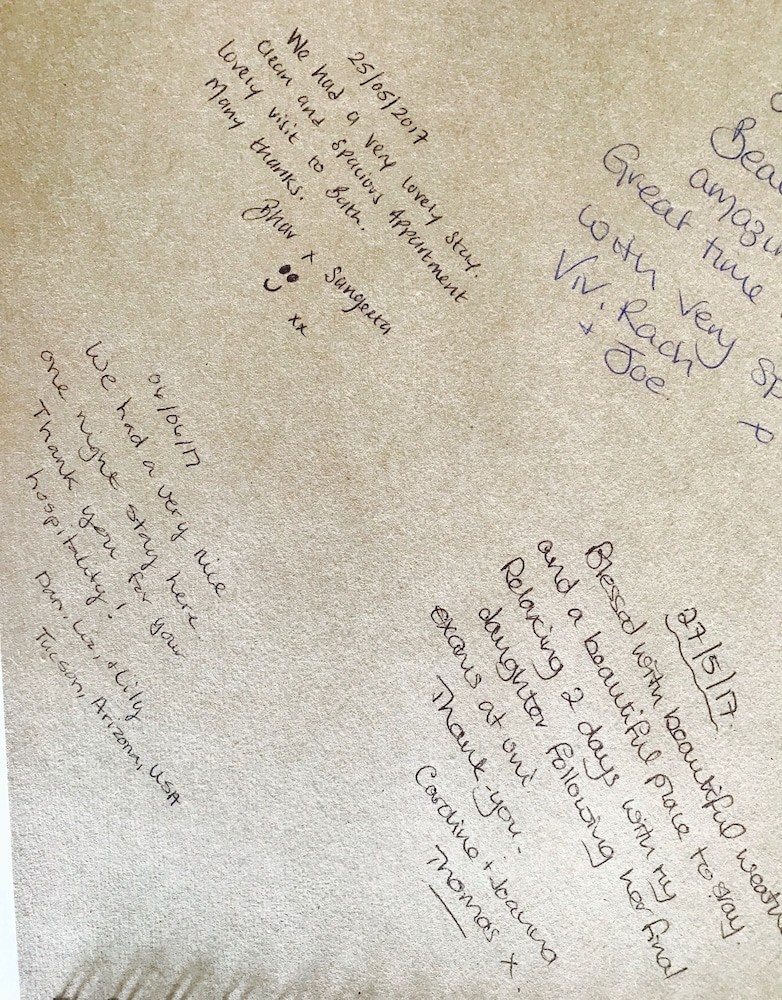 25/05/2017
We had a very lovely stay.
Clean and spacious Appartment
lovely visit to Bath.
Many thanks.
Bhav x Sangeeta
xx
Beau
amazin
Great time
with very sp
Viv, Rach
+ Joe x
06/06/17
We had a very nice
one night stay here.
Thank you for your
hospitality!
Dan, Liz, + Lily
Tucson, Arizona, USA
27/5/17
Blessed with beautiful weath
and a beautiful place to stay.
Relaxing 2 days with my
daughter following her final
exams at uni
Thank-you.
Caroline + Joanna
Thomas x